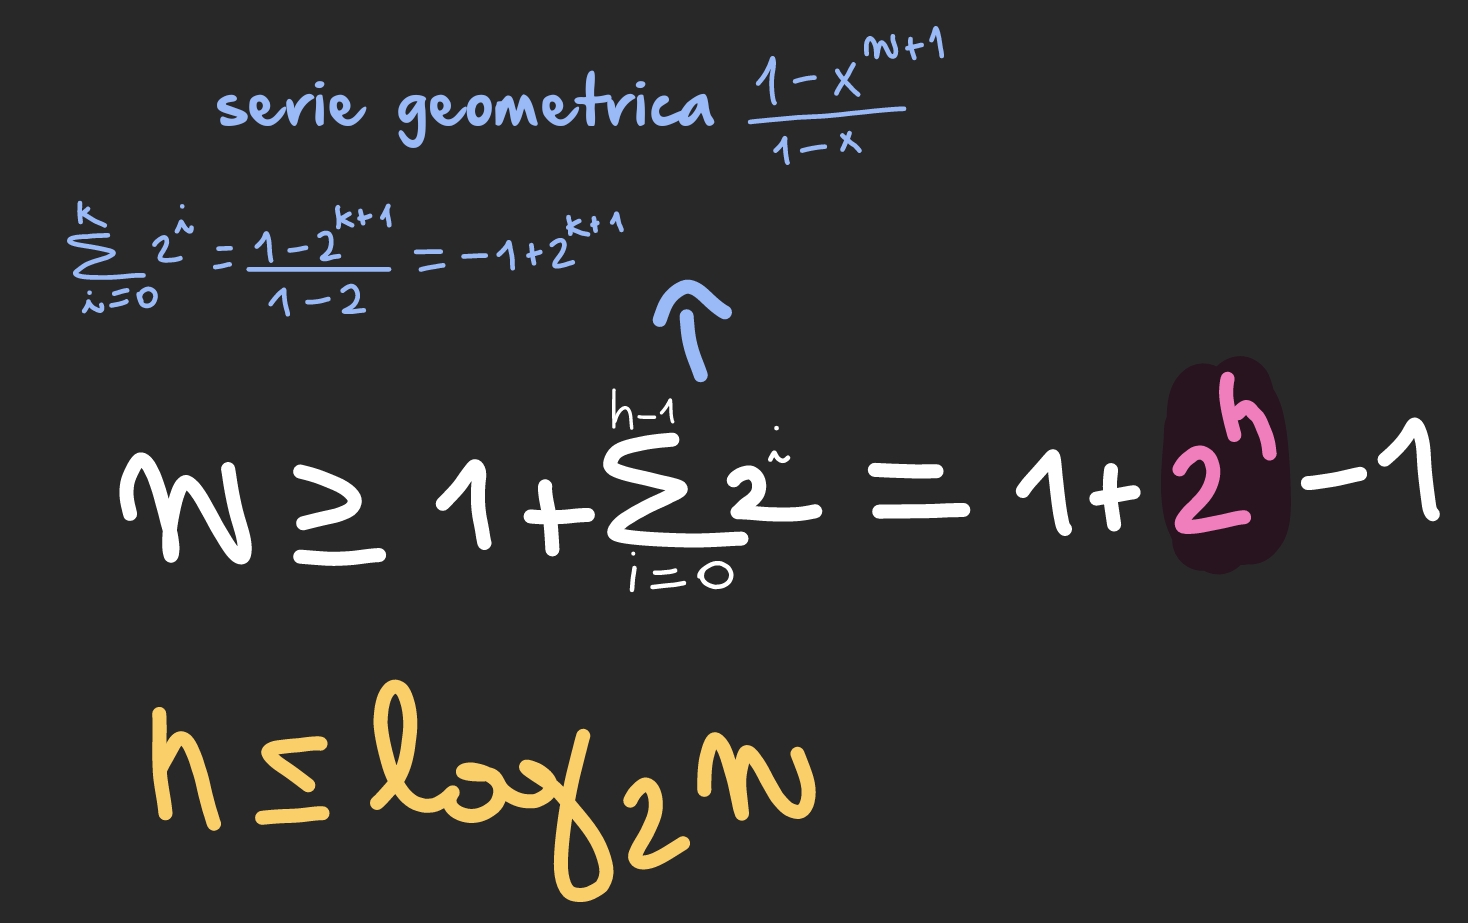 serie geometrica \frac{1-x^{n+1}}{1-x}
\sum_{i=0}^{k} 2^i = \frac{1-2^{k+1}}{1-2} = -1+2^{k+1}
↑
n ≥ 1+\sum_{i=0}^{h-1} 2^i = 1+2^h-1
h ≤ log_2 n